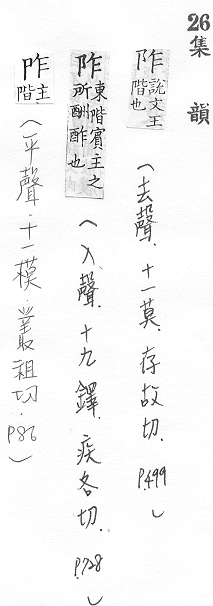 26集韻
阼說文主階也(去聲.十一莫.存故切.P.499)
阼東階賓主之所酬酢也(入聲.十九鐸.疾各切.P.728)
阼主階(平聲.十一模.叢祖切.P86)